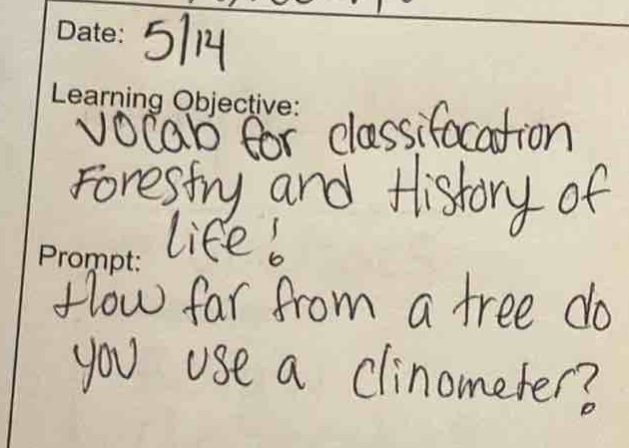 Date: 5/14
Learning Objective:
Vocab for classifacation
Forestry and History of
life!
Prompt:
How far from a tree do
you use a clinometer?